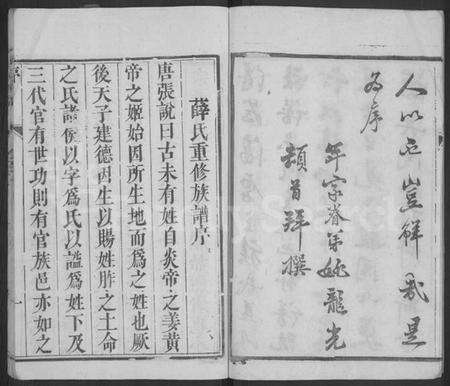 人以亡豈鮮哉是
為序
年家眷弟姚龍光
頓首拜撰
薛氏重修族譜序
唐張說曰古未有姓自炎帝之姜黃
帝之姬始因所生地而為之姓也厥
後天子建德因生以賜姓胙之土命
之氏諸侯以字為氏以謚為姓下及
三代官有世功則有官族邑亦如之
序
一